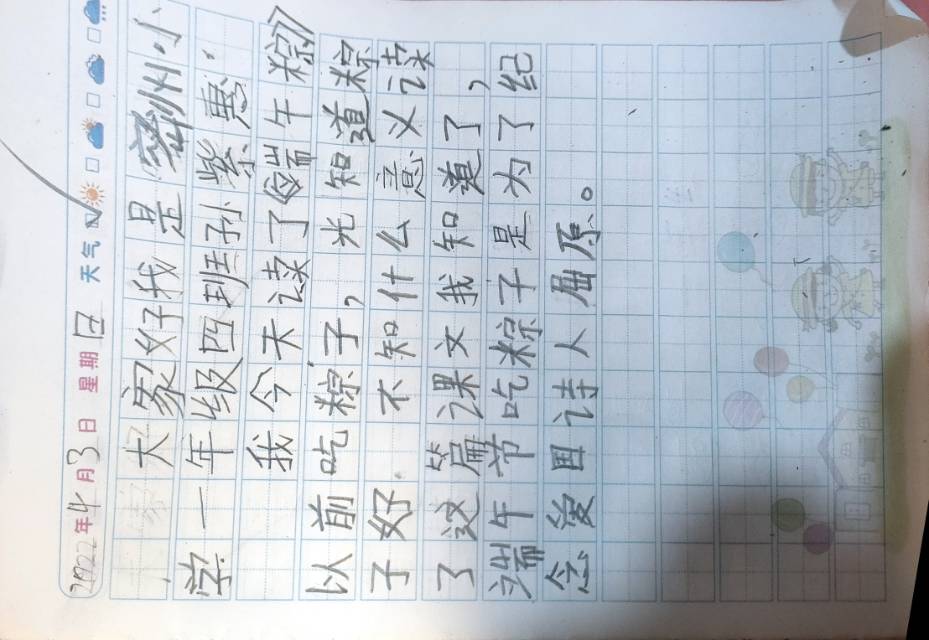 2022年4月3日 星期日 天气
大家好我是密州小
学一年级四班孙紫惠.
我今天读了《端午粽》
以前吃粽子,光知道粽
子好不知什么意义读
了这篇课文我知道了,
端午节吃粽子是为了纪
念爱国诗人屈原。